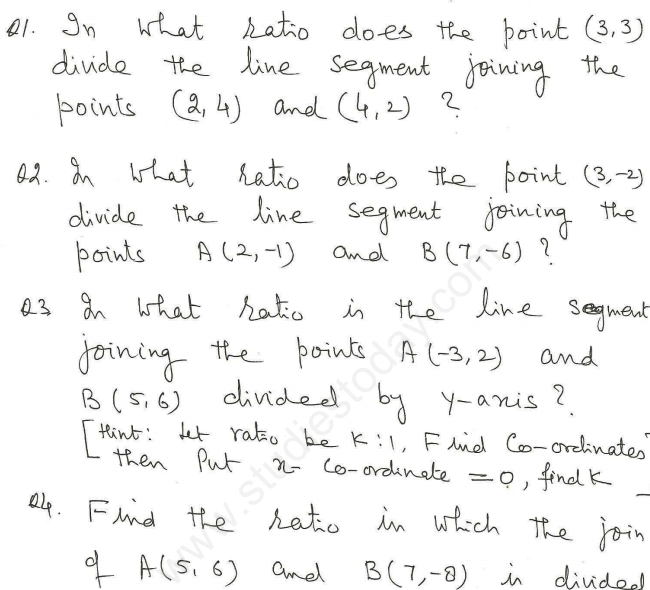 Q1. In what ratio does the point (3,3)
divide the line segment joining the
points (2,4) and (4,2) ?
Q2. In what ratio does the point (3,-2)
divide the line segment joining the
points A(2,-1) and B(7,-6) ?
Q3 In what ratio is the line segment
joining the points A(-3,2) and
B(5,6) divided by y-axis ?
[Hint: Let ratio be K:1, Find Co-ordinates
then Put x- Co-ordinate = 0, find K
Q4. Find the ratio in which the join
of A(5,6) and B(7,-8) is divided
www.studiestoday.com